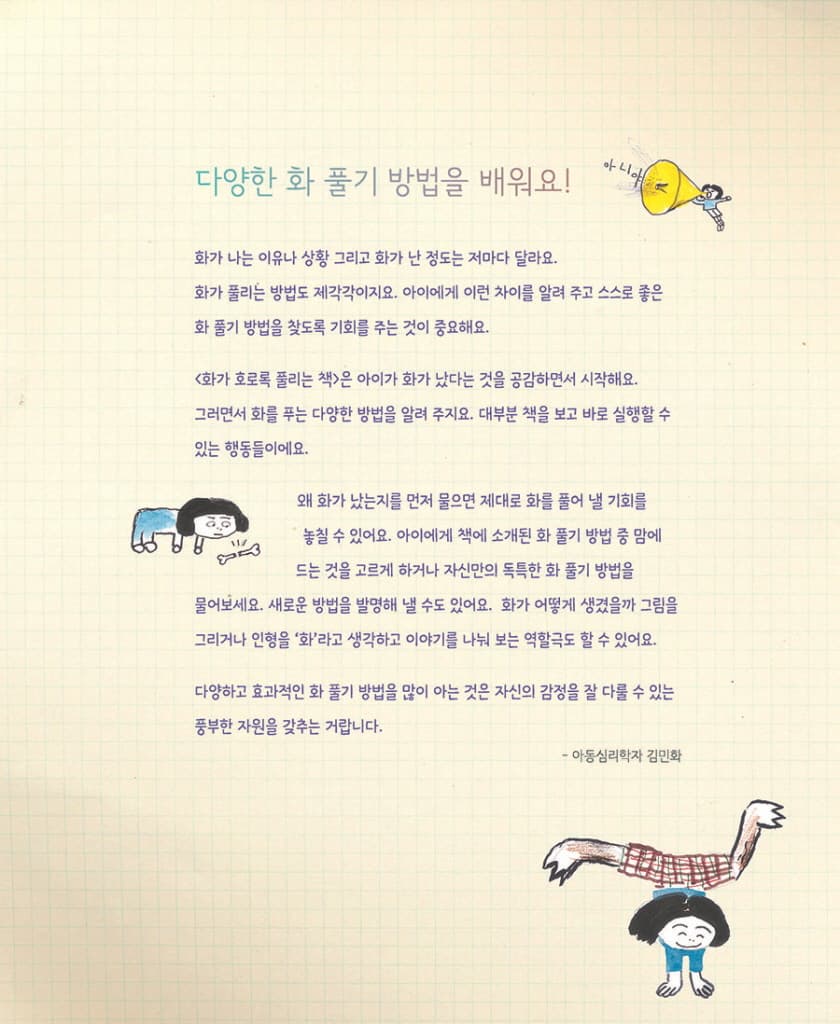 다양한 화 풀기 방법을 배워요!
아니야
화가 나는 이유나 상황 그리고 화가 난 정도는 저마다 달라요.
화가 풀리는 방법도 제각각이지요. 아이에게 이런 차이를 알려 주고 스스로 좋은
화 풀기 방법을 찾도록 기회를 주는 것이 중요해요.
<화가 호로록 풀리는 책>은 아이가 화가 났다는 것을 공감하면서 시작해요.
그러면서 화를 푸는 다양한 방법을 알려 주지요. 대부분 책을 보고 바로 실행할 수
있는 행동들이에요.
왜 화가 났는지를 먼저 물으면 제대로 화를 풀어 낼 기회를
놓칠 수 있어요. 아이에게 책에 소개된 화 풀기 방법 중 맘에
드는 것을 고르게 하거나 자신만의 독특한 화 풀기 방법을
물어보세요. 새로운 방법을 발명해 낼 수도 있어요. 화가 어떻게 생겼을까 그림을
그리거나 인형을 ‘화’라고 생각하고 이야기를 나눠 보는 역할극도 할 수 있어요.
다양하고 효과적인 화 풀기 방법을 많이 아는 것은 자신의 감정을 잘 다룰 수 있는
풍부한 자원을 갖추는 거랍니다.
- 아동심리학자 김민화